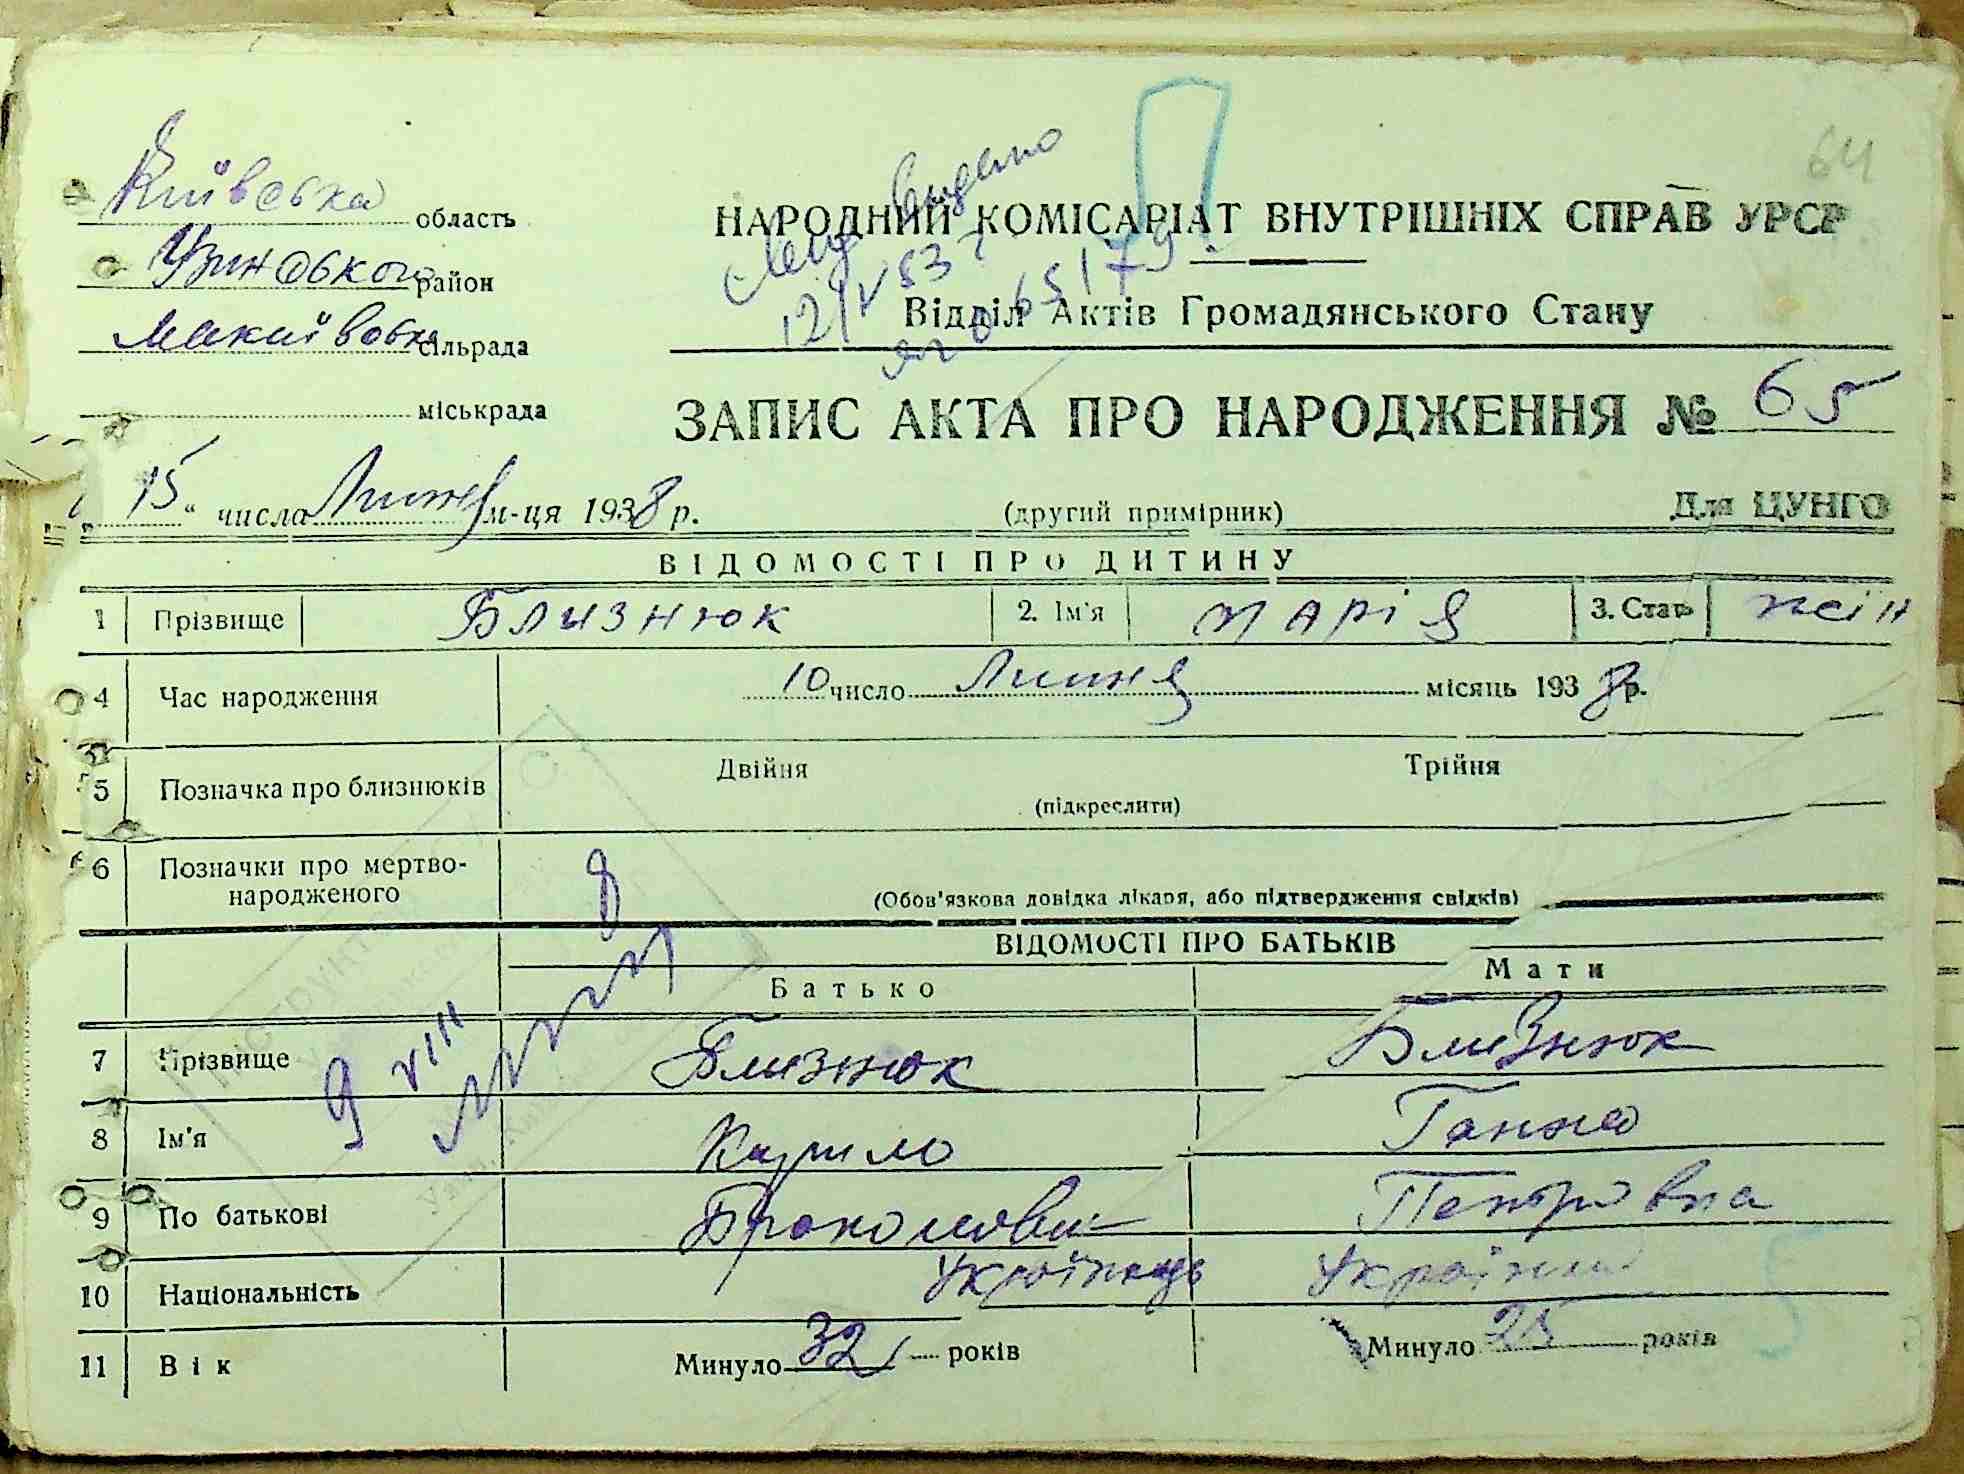 64
Київська область
НАРОДНИЙ КОМІСАРІАТ ВНУТРІШНІХ СПРАВ УРСР
Узинського район
Відділ Актів Громадянського Стану
сільрада
міськрада
ЗАПИС АКТА ПРО НАРОДЖЕННЯ № 65
15 " числа Липня м-ця 1938 р.
(другий примірник)
Для ЦУНГО
ВІДОМОСТІ ПРО ДИТИНУ
1 Прізвище Близнюк 2. Ім'я Марія 3. Стать жін
4 Час народження 10 число Липня місяць 1938 р.
5 Позначка про близнюків Двійня Трійня
(підкреслити)
6 Позначки про мертво-
народженого
(Обов'язкова довідка лікаря, або підтвердження свідків)
ВІДОМОСТІ ПРО БАТЬКІВ
Батько Мати
7 Прізвище Близнюк Близнюк
8 Ім'я Кирило Ганна
9 По батькові Петровна
10 Національність Українець
11 Вік Минуло 32 років Минуло 25 років